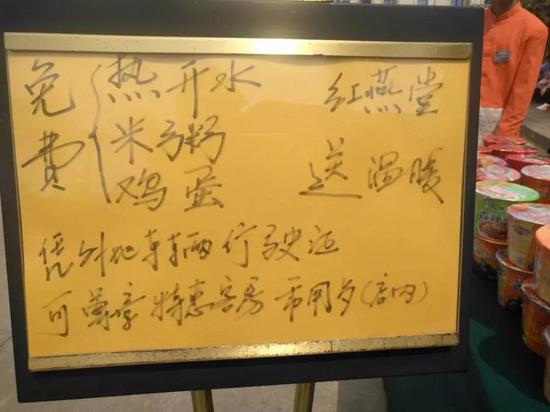 免费
热开水
米粥
鸡蛋
红燕堂
送温暖
凭外地车辆行驶证
可尊享特惠客房 (店内)